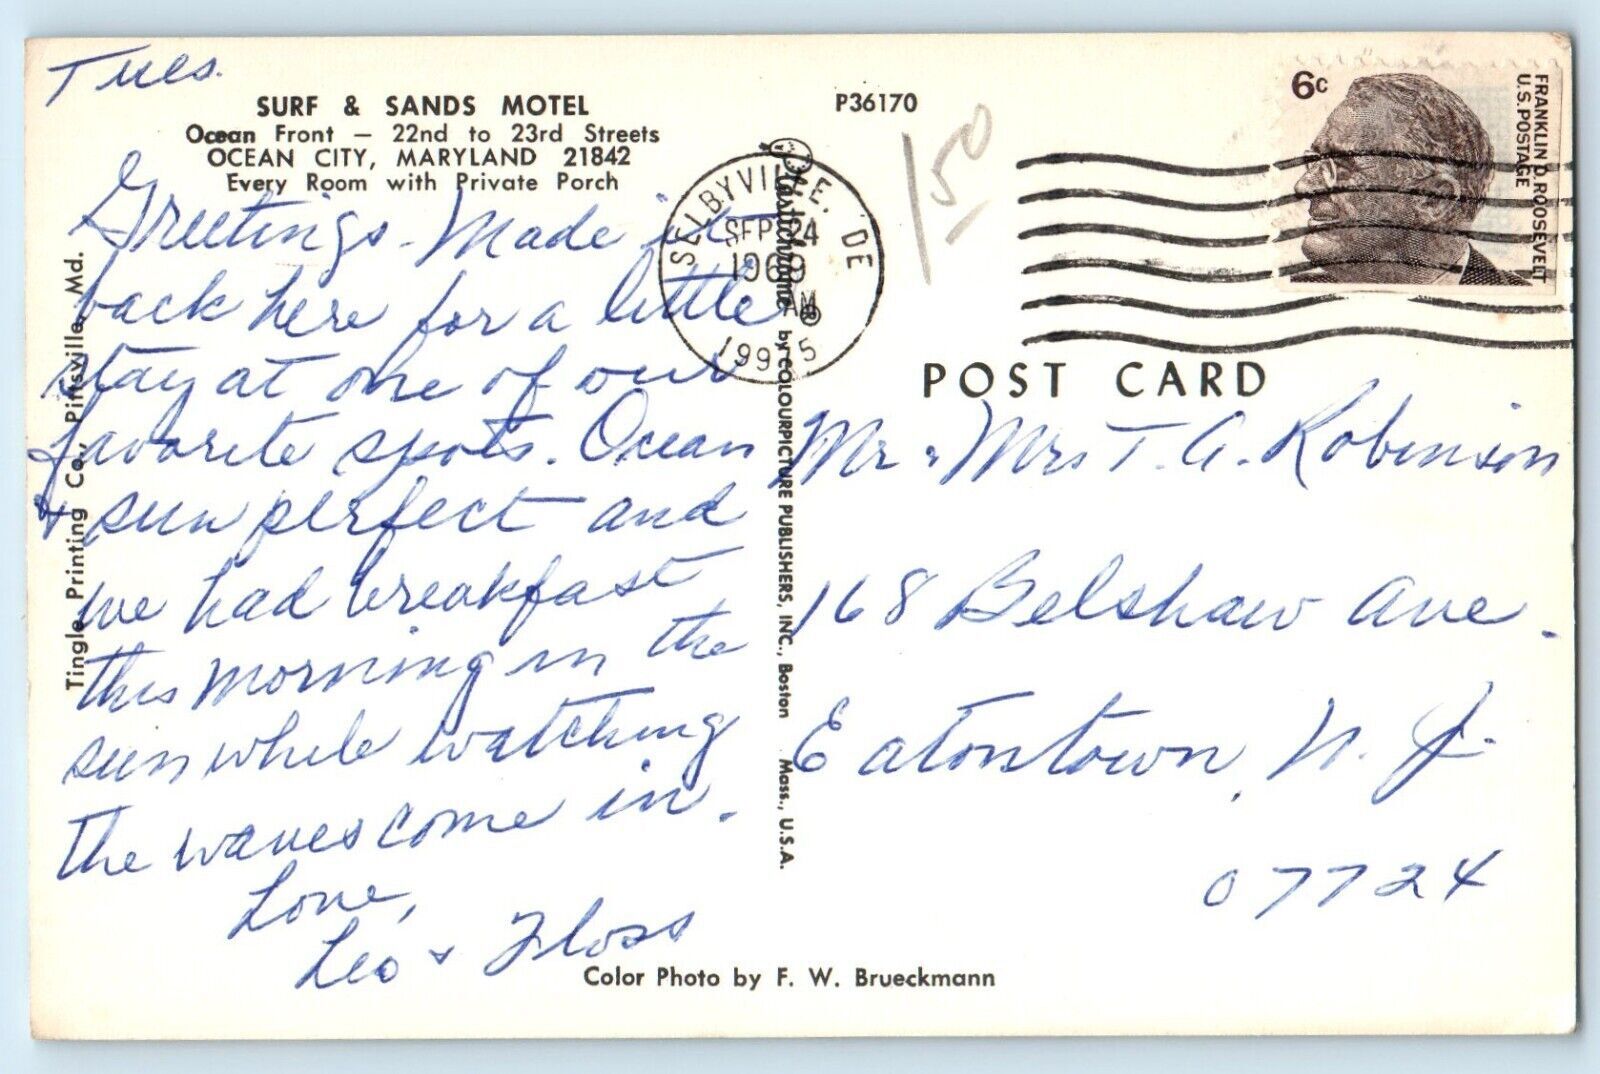 Tues.
SURF & SANDS MOTEL
Ocean Front – 22nd to 23rd Streets
OCEAN CITY, MARYLAND 21842
Every Room with Private Porch
Greetings - Made it
back here for a little
stay at one of our
favorite spots. Ocean
& sun perfect and
we had breakfast
this morning in the
sun while watching
the waves come in.
Love,
Leo & Floss
Tingle Printing Co., Pittsville, Md.
P36170
150
SELBYVILLE, DE
SEP 24
1969
AM
19975
Plastichrome ® by COLOURPICTURE PUBLISHERS, INC., Boston Mass., U.S.A.
6c
FRANKLIN D. ROOSEVELT
U.S. POSTAGE
POST CARD
Mr & Mrs T. A. Robinson
168 Belshaw Ave.
Eatontown, N. J.
07724
Color Photo by F. W. Brueckmann